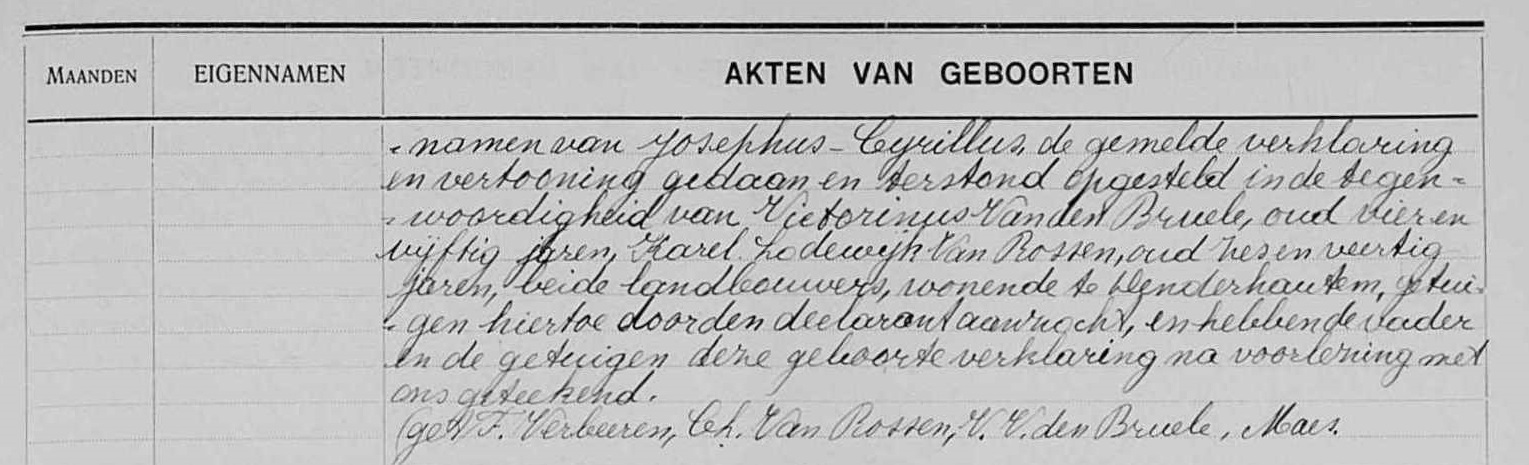 MAANDEN EIGENNAMEN AKTEN VAN GEBOORTEN
„namen van Josephus-Cyrillus, de gemelde verklaring
en vertooning gedaan en terstond opgesteld in de tegen=
„woordigheid van Victorinus Van den Bruele, oud vier en
vijftig jaren, Karel Lodewijk Van Rossen, oud zes en veertig
jaren, beide landbouwers, wonende te Denderhautem, getui-
„gen hiertoe door den declarant aanzocht, en hebben de vader
en de getuigen deze geboorteverklaring na voorlezing met
ons geteekend.
(get) F. Verbeeren, Ch. Van Rossen, V. V. den Bruele, Maes.